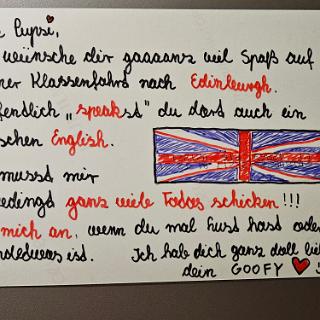 e Pupsi,
wünsche dir gaaaanz viel Spaß auf
ner Klassenfahrt nach Edinburgh.
ffentlich „speakst" du dort auch ein
schen English.
musst mir
edingt ganz viele Fotos schicken!!!
mich an, wenn du mal Lust hast oder
etwas ist. Ich hab dich ganz doll lieb
dein GOOFY